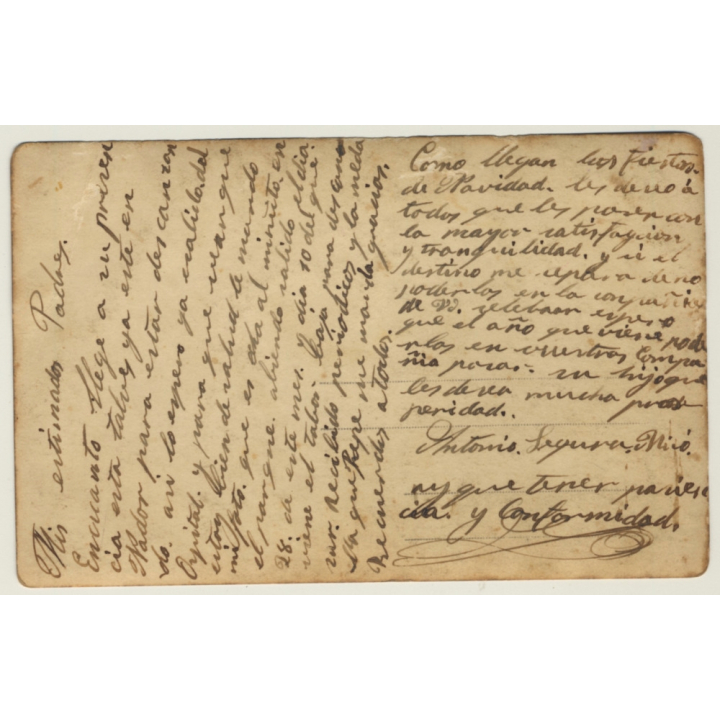 Mis estimados Padres.
Encuanto llege a su presen
cia esta talvez ya este en
Nador para estar descanzan
do. asi lo espero ya enalido. del
Ospital. y para que vean que
estoy bien de salud le mando
mi foto. que es dada al minuto. en
el parque. abiendo salido el dia
28. de este mes. y dia 10 del que
viene el tabor baja para descan
sar. Recibido periodicos y la meda
lla que Pepe me manda gracias.
Recuerdos a todos.
Como llegan las fiestas
de Navidad. les deseo á
todos que les pasen con
la mayor satisfagcion
y tranquilidad. y si el
destino me separa de no
poderlas en la conpañia
de V. zelebrar espero
que el año que viene pode
rlas en vuestras Compa
ñia pasar. su hijo que
les desea mucha pros
peridad.
Antonio. Segura. Miró
ay que tener pacien
cia. y Conformidad.